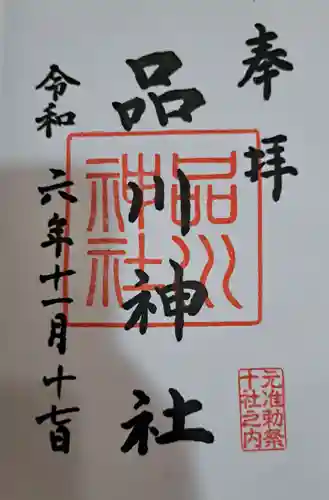 奉拝
品川神社
令和六年十一月十七日
品川
神社
元准勅祭
十社之内